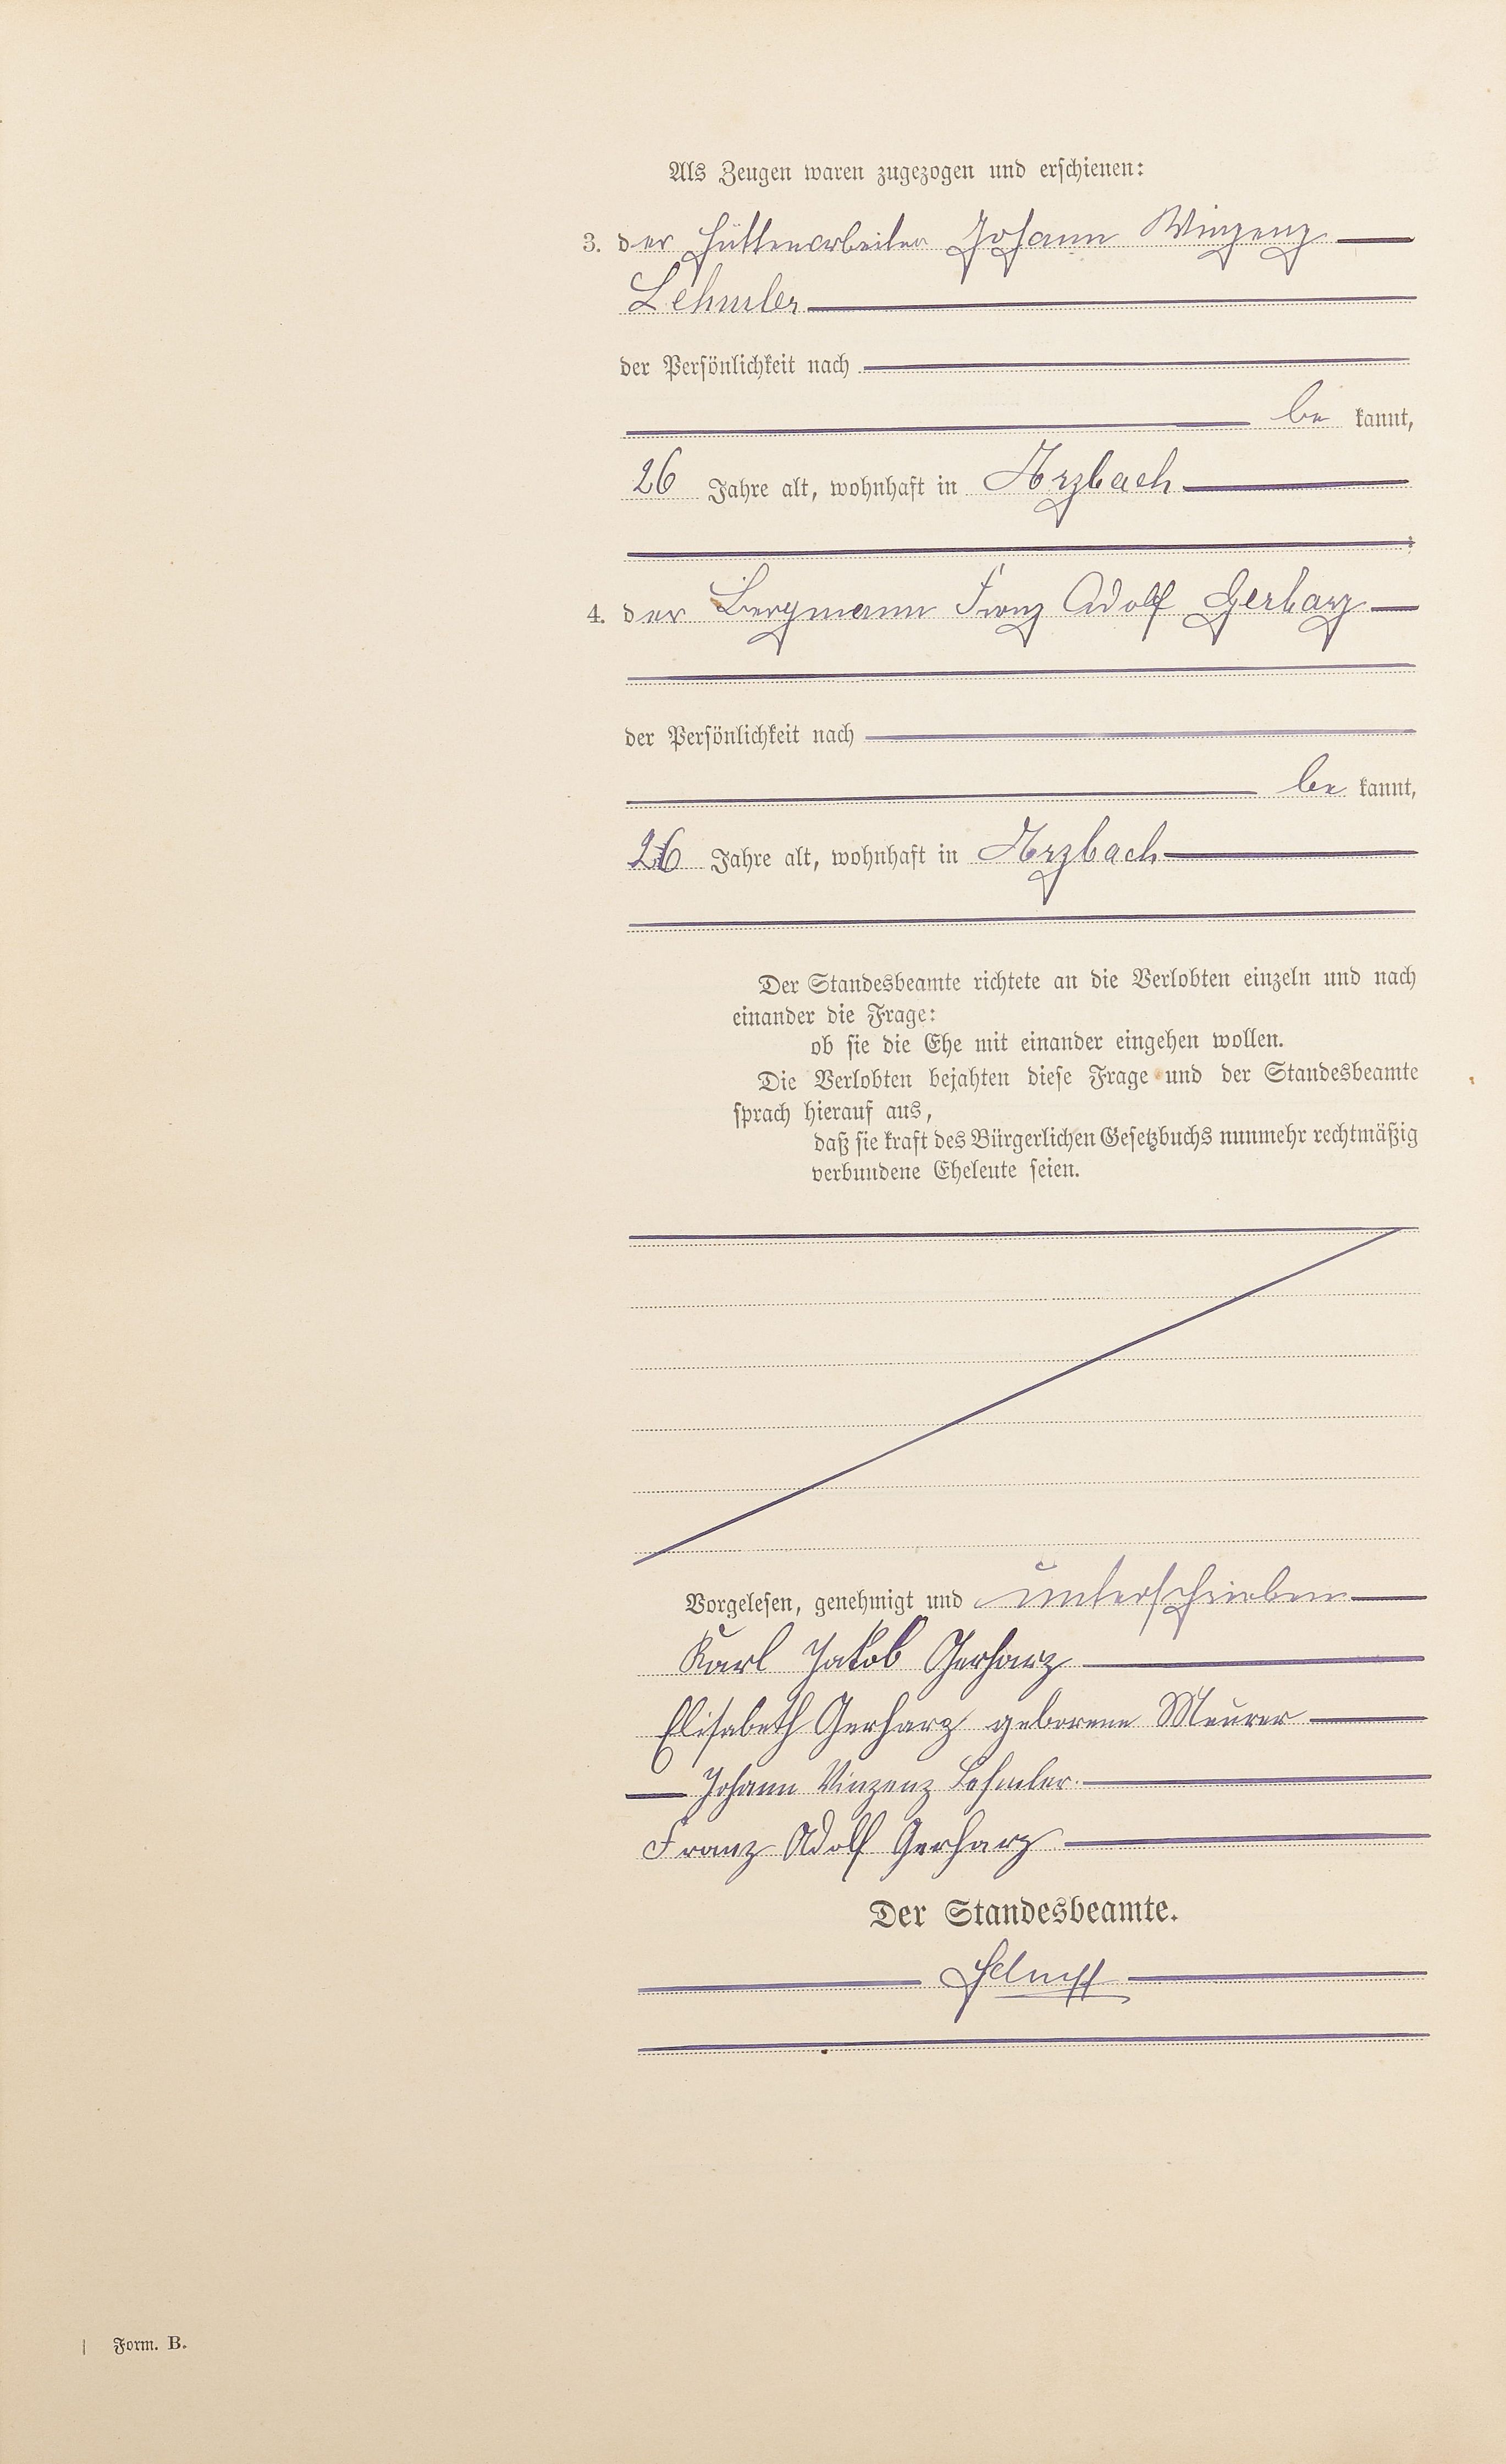 Als Zeugen waren zugezogen und erschienen:
3. der Hüttenarbeiter Johann Vinzenz
Lehmler
der Persönlichkeit nach
be kannt,
26 Jahre alt, wohnhaft in Arzbach
;
4. der Bergmann Franz Adolf Gerharz
der Persönlichkeit nach
be kannt,
26 Jahre alt, wohnhaft in Arzbach
Der Standesbeamte richtete an die Verlobten einzeln und nach
einander die Frage:
ob sie die Ehe mit einander eingehen wollen.
Die Verlobten bejahten diese Frage und der Standesbeamte
sprach hierauf aus,
daß sie kraft des Bürgerlichen Gesetzbuchs nunmehr rechtmäßig
verbundene Eheleute seien.
Vorgelesen, genehmigt und unterschrieben
Karl Jakob Gerharz
Elisabeth Gerharz geborene Meurer
Johann Vinzenz Lehmler
Franz Adolf Gerharz
Der Standesbeamte.
Form. B.